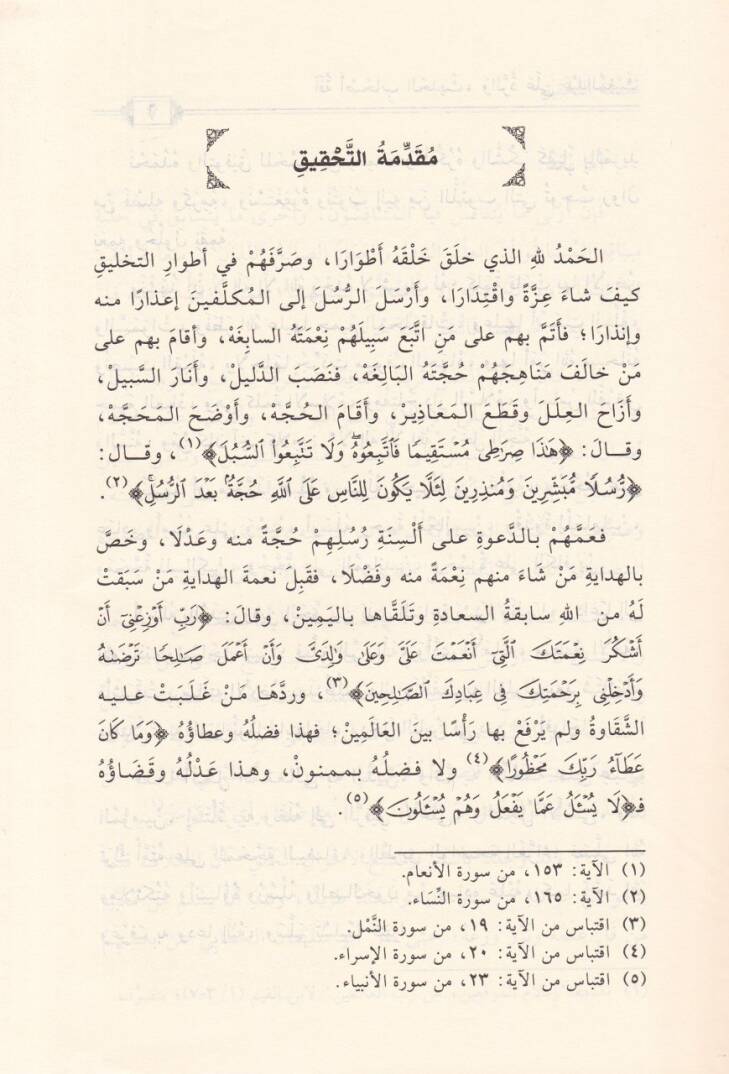 مُقَدِّمَةُ التَّحْقِيقِ
الحَمْدُ للهِ الذي خلَقَ خَلْقَهُ أَطْوَارَا، وصَرَّفَهُمْ في أطوارِ التخليقِ
كيفَ شاءَ عِزَّةً واقْتِدَارَا، وأَرْسَلَ الرُّسُلَ إلى المُكلَّفينَ إعذارًا منه
وإنذارَا؛ فأَتَمَّ بهم على مَنِ اتَّبَعَ سَبِيلَهُمْ نِعْمَتَهُ السابِغَهْ، وأقامَ بهم على
مَنْ خالَفَ مَنَاهِجَهُمْ حُجَّتَهُ البَالِغَهْ، فنَصَبَ الدَّليلْ، وأَنَارَ السَّبيلْ،
وأَزَاحَ العِلَلَ وقَطَعَ المَعَاذِيرْ، وأَقَامَ الحُجَّهْ، وأَوْضَحَ المَحَجَّهْ،
وقالَ: ﴿هَٰذَا صِرَٰطِى مُسْتَقِيمًا فَٱتَّبِعُوهُ ۖ وَلَا تَتَّبِعُوا۟ ٱلسُّبُلَ﴾(١)، وقالَ:
﴿رُّسُلًا مُّبَشِّرِينَ وَمُنذِرِينَ لِئَلَّا يَكُونَ لِلنَّاسِ عَلَى ٱللَّهِ حُجَّةٌۢ بَعْدَ ٱلرُّسُلِ ۚ﴾(٢).
فعَمَّهُمْ بالدَّعوةِ على أَلْسِنَةِ رُسُلِهِمْ حُجَّةً منه وعَدْلَا، وخَصَّ
بالهدايةِ مَنْ شَاءَ منهم نِعْمَةً منه وفَضْلَا، فقَبِلَ نعمةَ الهدايةِ مَنْ سَبَقتْ
لَهُ من اللهِ سابقةُ السعادةِ وتَلَقَّاها باليَمِينْ، وقالَ: ﴿رَبِّ أَوْزِعْنِىٓ أَنْ
أَشْكُرَ نِعْمَتَكَ ٱلَّتِىٓ أَنْعَمْتَ عَلَىَّ وَعَلَىٰ وَٰلِدَىَّ وَأَنْ أَعْمَلَ صَٰلِحًا تَرْضَىٰهُ
وَأَدْخِلْنِى بِرَحْمَتِكَ فِى عِبَادِكَ ٱلصَّٰلِحِينَ﴾(٣)، وردَّهَا مَنْ غَلَبَتْ عليه
الشَّقاوةُ ولم يَرْفَعْ بها رَأْسًا بينَ العالَمِينْ؛ فهذا فضلُهُ وعطاؤُهُ ﴿وَمَا كَانَ
عَطَآءُ رَبِّكَ مَحْظُورًا﴾(٤) ولا فضلُهُ بممنونْ، وهذا عَدْلُهُ وقَضَاؤُهُ
فـ﴿لَا يُسْـَٔلُ عَمَّا يَفْعَلُ وَهُمْ يُسْـَٔلُونَ﴾(٥).
(١) الآية: ١٥٣، من سورة الأنعام.
(٢) الآية: ١٦٥، من سورة النِّسَاء.
(٣) اقتباس من الآية: ١٩، من سورة النَّمْل.
(٤) اقتباس من الآية: ٢٠، من سورة الإسراء.
(٥) اقتباس من الآية: ٢٣، من سورة الأنبياء.